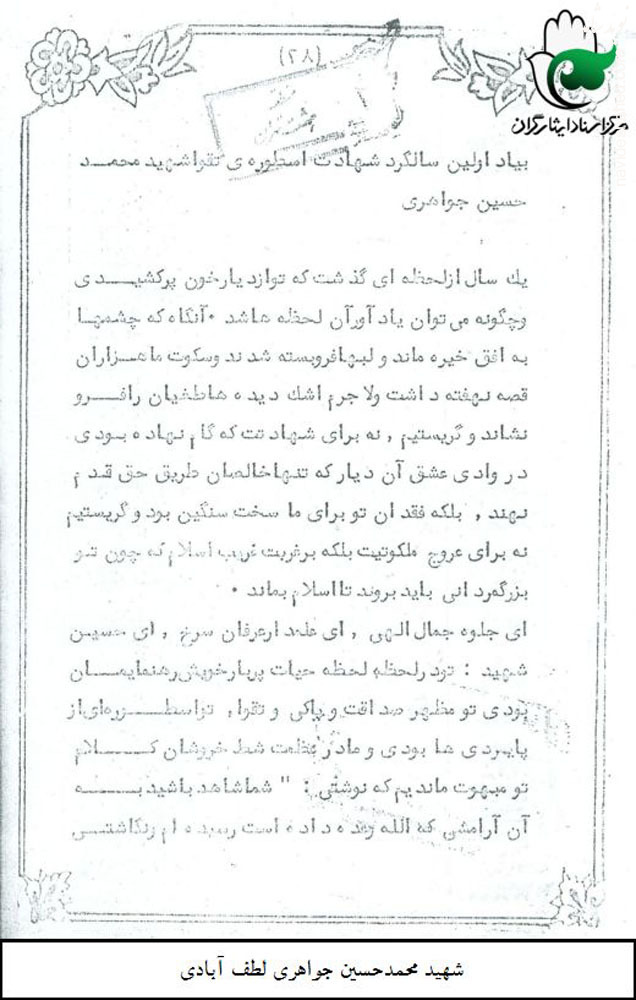 (۲۸)
مرکز اسناد ایثارگران
بیاد اولین سالگرد شهادت اسطوره ی تقوا شهید محمد
حسین جواهری
یك سال از لحظه ای گذشت که تو از دیار خون پرکشیدی
وچگونه می توان یاد آور آن لحظه ها شد ۰ آنگاه که چشمها
به افق خیره ماند و لبها فروبسته شدند وسکوت ما هزاران
قصه نهفته داشت ولاجرم اشك دیده ها طغیان را فرو
نشاند و گریستیم , نه برای شهادتت که گام نهاده بودی
در وادی عشق آن دیار که تنها خالصان طریق حق قدم
نهند , بلکه فقدان تو برای ما سخت سنگین بود و گریستیم
نه برای عروج ملکوتیت بلکه برغربت غریب اسلام که چون تو
بزرگمردانی باید بروند تا اسلام بماند ۰
ای جلوه جمال الهی , ای علمدار عرفان سرخ , ای حسین
شهید : تو در لحظه لحظه حیات پربار خویش رهنمایمان
بودی تو مظهر صداقت و پاکی و تقوا , تو اسطوره ای از
پایمردی ها بودی و ما در عظمت شط خروشان کلام
تو مبهوت ماندیم که نوشتی : " شما شاهد باشید به
آن آرامشی که الله وعده داده است رسیده ام ونگاشتی
شهید محمدحسین جواهری لطف آبادی